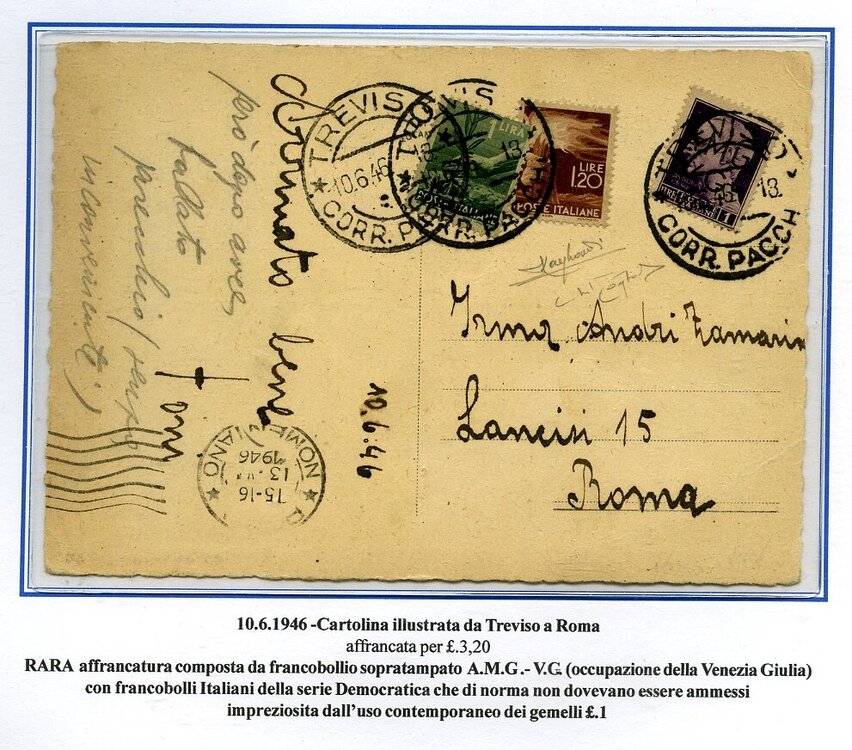 TREVISO
10.6.46
CORR. P
TREVIS
18
CORR. PACCHI
1 LIRA
LIRE
1.20
POSTE ITALIANE
18
CORR. PACCH
Irma Andri Zamarin
Lancisi 15
Roma
bene
però dopo aver
ballato
parecchio (senza
inconvenienti)
10.6.46
15-16
1946
10.6.1946 -Cartolina illustrata da Treviso a Roma
affrancata per £.3,20
RARA affrancatura composta da francobollio sopratampato A.M.G.- V.G. (occupazione della Venezia Giulia)
con francobolli Italiani della serie Democratica che di norma non dovevano essere ammessi
impreziosita dall'uso contemporaneo dei gemelli £.1